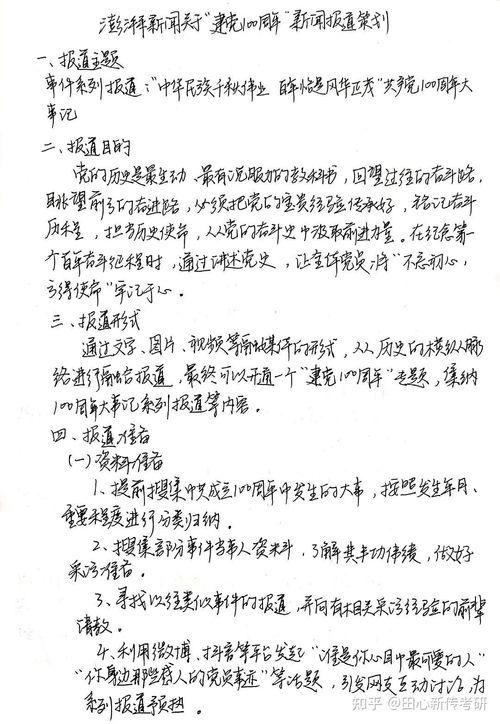 澎湃新闻关于“建党100周年”新闻报道策划
一、报道主题
事件系列报道：“中华民族千秋伟业 百年恰是风华正茂”共产党100周年大
事记
二、报道目的
党的历史是最生动、最有说服力的教科书，回望过往的奋斗路，
眺望前方的奋进路，必须把党的宝贵经验传承好，铭记奋斗
历程，担当历史使命，从党的奋斗史中汲取前进力量。在纪念第一
个百年奋斗征程时，通过讲述党史，让全体党员将“不忘初心、
方得使命”牢记于心。
三、报道形式
通过文字、图片、视频等融媒体的形式，从历史的横纵脉
络进行融合报道，最终可以开通一个“建党100周年”专题，集纳
100周年大事记系列报道等内容。
四、报道准备
（一）资料准备
1、提前搜集中共成立100周年中发生的大事，按照发生年月、
重要程度进行分类归纳。
2、搜集部分事件当事人资料，了解其丰功伟绩，做好
采访准备。
3、寻找以往类似事件的报道，并向有相关采访经验的前辈
请教。
4、利用微博、抖音等平台发起“谁是你心目中最可爱的人”
“你身边那些感人的党员事迹”等话题，引发网友互动讨论，为
系列报道预热。
知乎 @田心新传考研